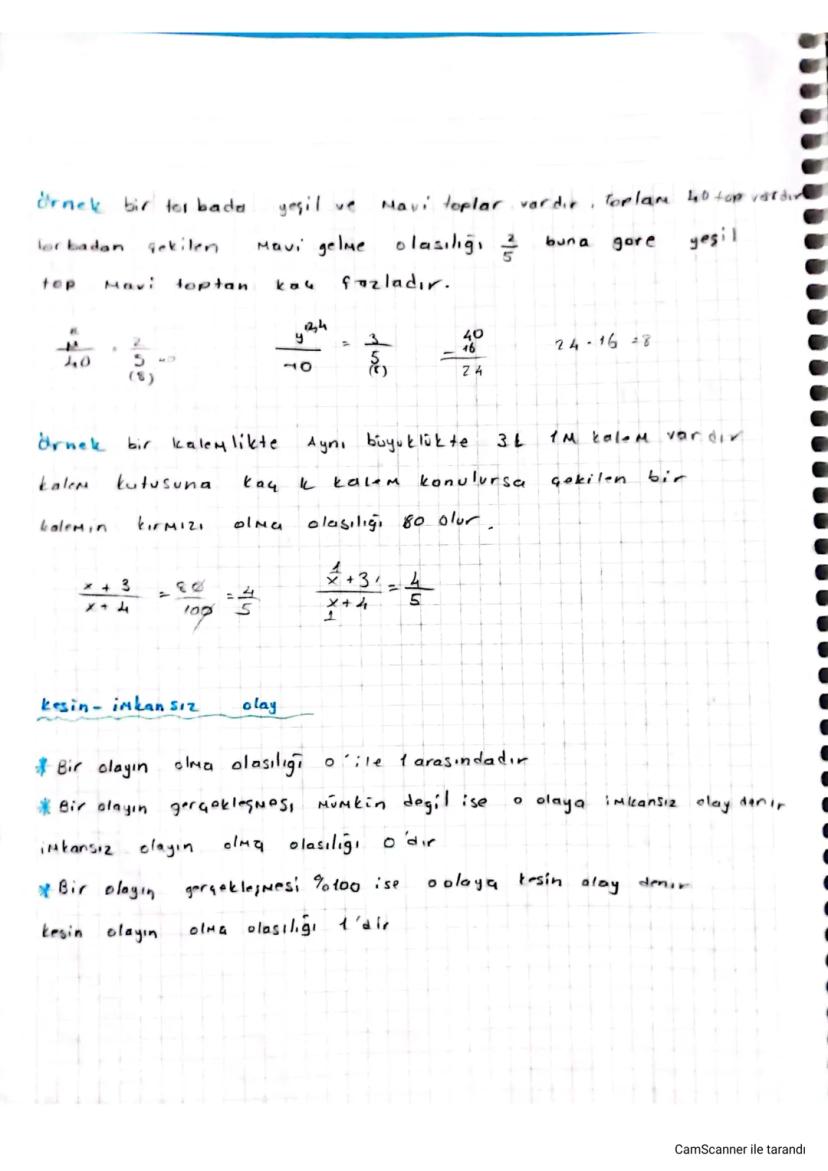 Örnek bir torbada yeşil ve Mavi toplar vardır, Toplam 40 top vardır
torbadan çekilen Mavi gelme olasılığı 2/5 buna göre yeşil
top Mavi toptan kaç fazladır.
/40 2/5 (8) y/40 = 3/5 (8) 40 - 16 24 24 - 16 = 8
Örnek bir kalemlikte Aynı büyüklükte 3k 1M kalem vardır
kalem kutusuna kaç k kalem konulursa çekilen bir
kalemin kırmızı olma olasılığı 80 olur.
x + 3 / x + 4 = 80/100 = 4/5 1 x + 3 / x + 4 1 = 4/5
kesin - imkansız olay
* Bir olayın olma olasılığı 0'ile 1 arasındadır
* Bir olayın gerçekleşmesi mümkin değil ise o olaya imkansız olay denir
imkansız olayın olma olasılığı 0'dır
* Bir olayın gerçekleşmesi %100 ise o olaya kesin olay denir
kesin olayın olma olasılığı 1'dir
CamScanner ile tarandı